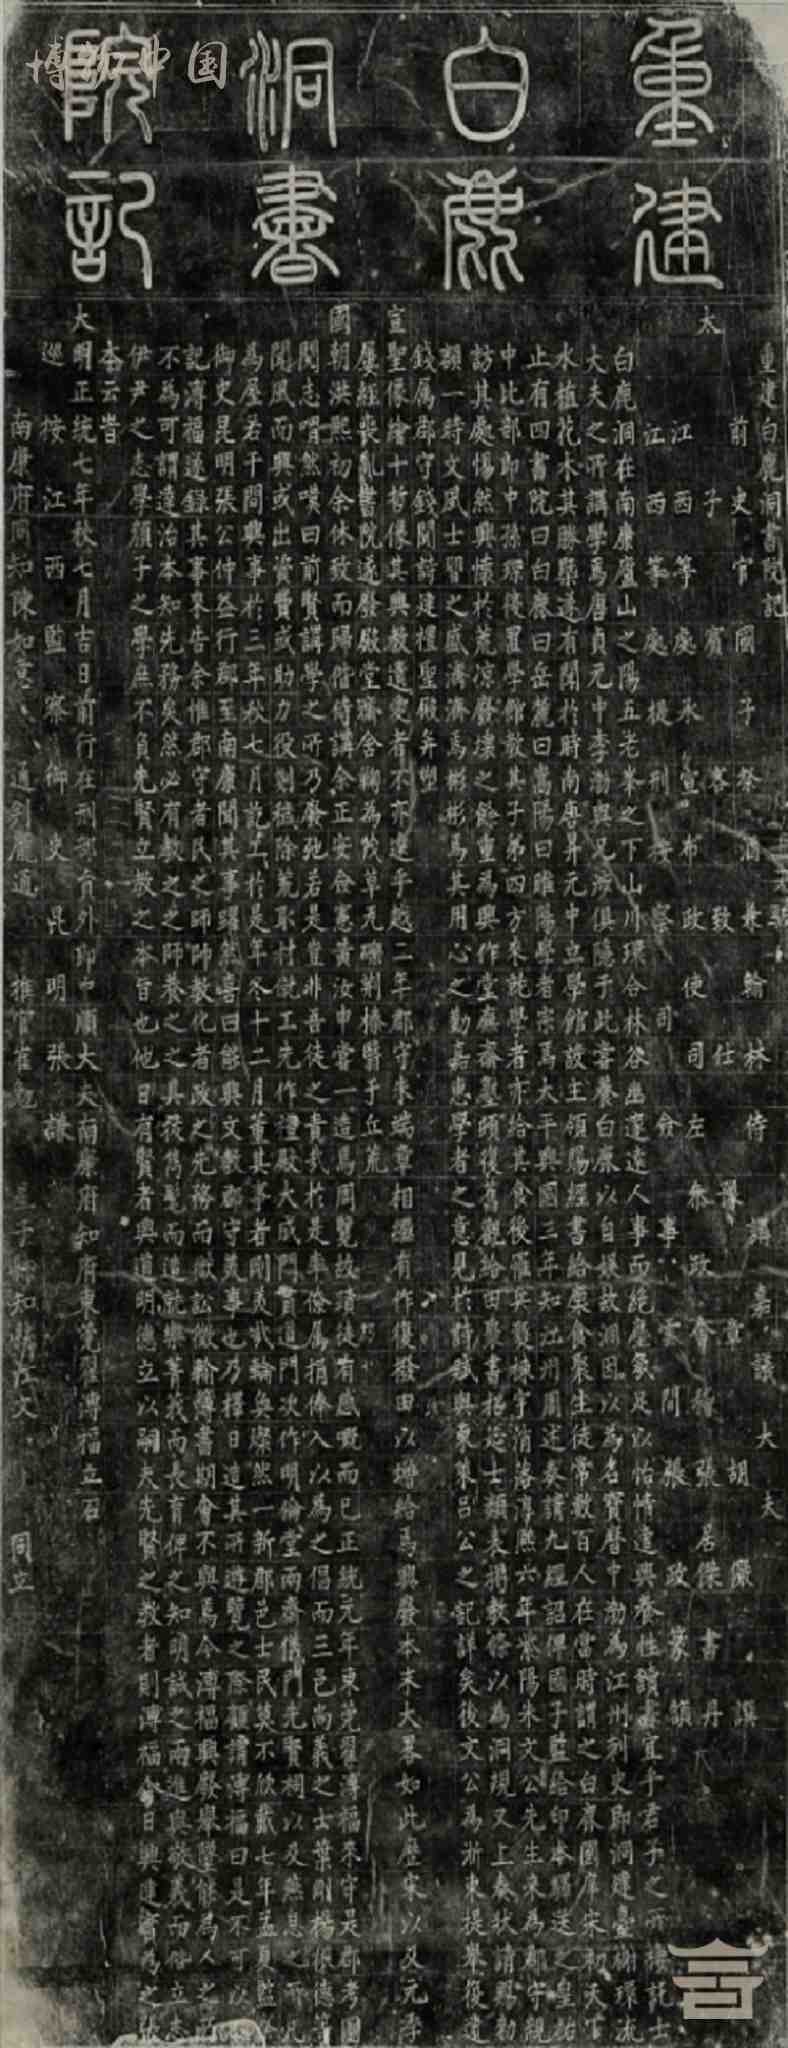 重建
白鹿
洞書
院記
博物中国
重建白鹿洞書院記
前史官國子祭酒兼翰林侍講嘉議大夫
太子賓客致仕豫章胡儼撰
江西等處承宣布政使司左叅政會稽張居傑書丹
江西等處提刑按察司僉事雲間張政篆額
白鹿洞在南康廬山之陽五老峯之下山川環合林谷幽邃遠人事而絕塵氛足以怡情遣興養性讀書宜乎君子之所棲託士
大夫之所講學焉唐貞元中李渤與兄涉俱隱于此嘗養白鹿以自娛故洞因以為名寶曆中渤為江州刺史即洞建臺榭環流
水植花木其勝槩遂有聞於時南唐昇元中立學館設主領賜經書給廩食聚生徒常數百人在當時謂之白鹿國庠宋初天下
止有四書院曰白鹿曰岳麓曰嵩陽曰睢陽學者宗焉太平興國三年知江州周述奏請九經詔俾國子監給印本驛送之皇祐
中比部郎中孫琛復置學館教其子弟四方來就學者亦給其食後罹兵燹棟宇消落淳熙六年紫陽朱文公先生來為郡守親
訪其處惕然興懷於荒凉廢壞之餘重為興作堂廡齋
額一時文風士習之盛濟濟焉彬彬焉其用心之勤嘉惠學者之意見於詩賦與東萊呂公之記詳矣後文公為浙東提舉復遣
錢屬郡守錢聞詩建禮聖殿并塑
宣聖像繪十哲像其興教遺愛者不亦遠乎越二年郡守朱端章相繼有作復撥田以增給焉興廢本末大畧如此歷宋以及元季
屢經喪亂書院遂廢殿堂齋舍鞠為茂草瓦礫荆榛翳乎丘荒
國朝洪熙初余休致而歸偕侍講余正安僉憲黃汝申嘗一造焉周覽故蹟徒有感嘅而已正統元年東莞翟溥福來守是郡考圖
閱志喟然嘆曰前賢講學之所乃廢弛若是豈非吾徒之責哉於是率僚屬捐俸入以為之倡而三邑尚義之士葉剛楊振德等
聞風而興或出資費或助力役剷穢除荒取材就工先作禮殿大成門貫道門次作明倫堂兩齋儀門先賢祠以及燕息之所凡
為屋若干間興事於三年秋七月訖工於是年冬十二月董其事者剛美哉輪奐燦然一新郡邑士民莫不欣戴七年孟夏監察
御史昆明張公仲益行郡至南康聞其事躍然喜曰能興文教郡守美事也乃擇日造其所遊覽之際顧謂溥福曰是不可以無
記溥福遂錄其事來告余惟郡守者民之師師教化者政之先務而獄訟徵輸簿書期會不與焉今溥福興廢舉墜能為人之所
不為可謂達治本知先務矣然必有教之之師養之之具
伊尹之志學顏子之學庶不負先賢立教之本旨也他日有賢者興道明德立以嗣夫先賢之教者則溥福今日興建實為之張
本云旹
大明正統七年秋七月吉日前行在刑部員外郎中順大夫南康府知府東莞翟溥福立石
巡按江西監察御史昆明張謙
南康府同知陳如 通判 推官崔 星子縣知縣 同立